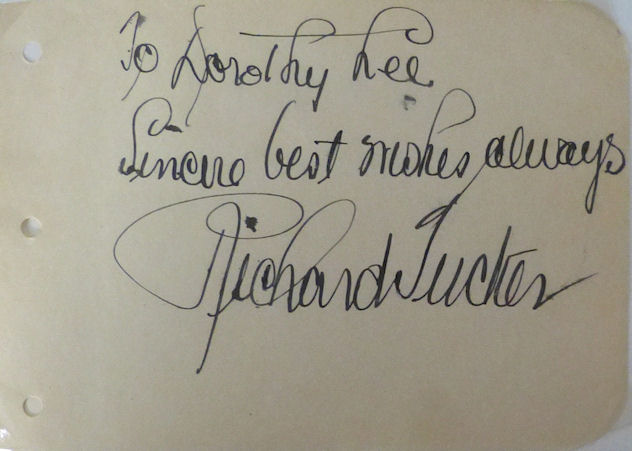 To Dorothy Lee
Sincere best wishes always
Richard Tucker